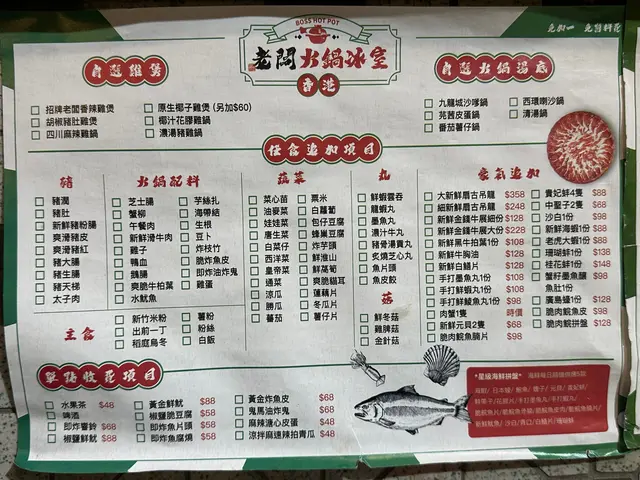 BOSS HOT POT
老闆火鍋冰室
香港
免加一 免醬料花
自選雞煲
招牌老闆香辣雞煲
胡椒豬肚雞煲
四川麻辣雞鍋
原生椰子雞煲 (另加$60)
椰汁花膠雞鍋
濃湯豬雞鍋
自選火鍋湯底
九龍城沙嗲鍋
芫茜皮蛋鍋
番茄薯仔鍋
西環喇沙鍋
清湯鍋
任食追加項目
豬
豬潤
豬肚
新鮮豬粉腸
爽滑豬皮
爽滑豬紅
豬大腸
豬生腸
豬天梯
太子肉
火鍋配料
芝士腸
蟹柳
午餐肉
新鮮滑牛肉
雞子
鴨血
鵝腸
爽脆牛柏葉
水魷魚
芋絲扎
海帶結
生根
豆卜
炸枝竹
脆炸魚皮
即炸油炸鬼
雞蛋
主食
新竹米粉
出前一丁
稻庭烏冬
薯粉
粉絲
白飯
蔬菜
菜心苗
油麥菜
娃娃菜
唐生菜
白菜仔
西洋菜
皇帝菜
通菜
涼瓜
勝瓜
番茄
粟米
白蘿蔔
包仔豆腐
蜂巢豆腐
炸芋頭
金菇菜
鮮菇萄
爽脆貓耳
蓮藕片
冬瓜片
薯仔片
丸
鮮蝦雲吞
龍蝦丸
墨魚丸
濃汁牛丸
豬骨湯貢丸
炙燒芝心丸
魚片頭
魚皮餃
菇
鮮冬菇
雞脾菇
金針菇
豪氣追加
大新鮮扇古吊龍 $358
細新鮮扇古吊龍 $248
新鮮金錢牛展細份 $128
新鮮金錢牛展大份 $228
新鮮黑牛柏葉1份 $108
新鮮牛胸油 $128
新鮮白鱔片 $128
手打墨魚丸1份 $108
手打鮮蝦丸1份 $108
手打鮮鯪魚丸1份 $98
肉蟹1隻 時價
新鮮元貝2隻 $68
脆肉鯇魚腩片 $98
貴妃蚌4隻 $88
中聖子2隻 $68
沙白1份 $98
新鮮海蝦1份 $88
老虎大蝦1份 $88
珊瑚蚌1份 $138
桂花蚌1份 $148
蟹籽墨魚膠 $98
魚肚1份
廣島蠔1份 $128
脆肉鯇魚片 $98
脆肉鯇拼盤 $128
單點收花項目
水果茶 $48
啤酒
即炸響鈴 $68
椒鹽鮮魷 $88
黃金鮮魷 $88
椒鹽脆豆腐 $58
即炸魚片頭 $58
即炸魚腐燒 $58
黃金炸魚皮 $68
鬼馬油炸鬼 $68
麻辣溏心皮蛋 $48
涼拌麻速辣拍青瓜 $48
*星級海鮮拼盤*